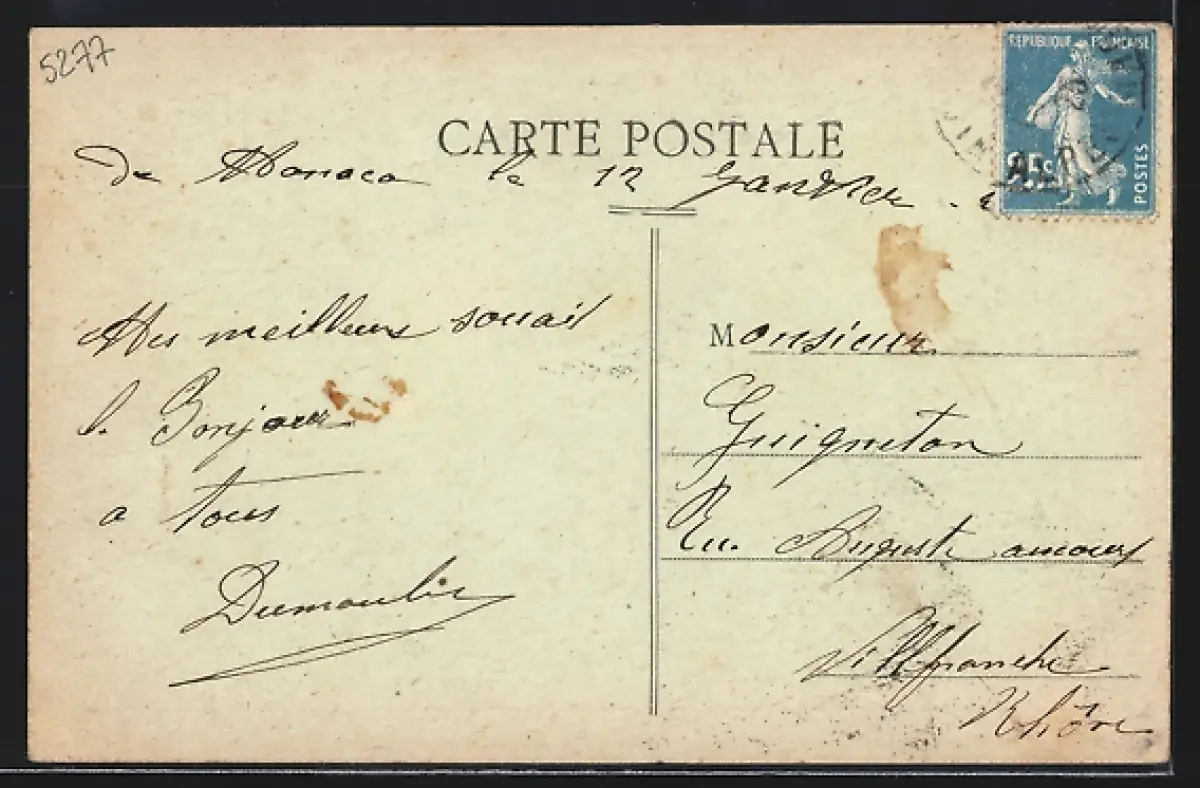 5277
REPUBLIQUE FRANCAISE
25c
POSTES
CARTE POSTALE
De Monaco le 12 Janvier
Mes meilleurs souait
Bonjour
a tous
Dumoulin
Monsieur
Guigneton
Rue Auguste
Villfranche
Rhône